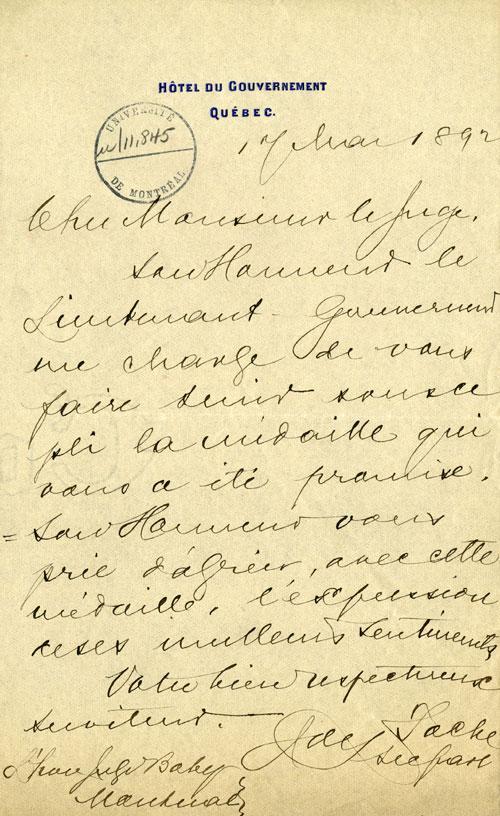 HÔTEL DU GOUVERNEMENT
QUÉBEC.
UNIVERSITÉ
u/11,845
DE MONTRÉAL
17 Mai 1892
Cher Monsieur le Juge,
Son Honneur le
Lieutenant-Gouverneur
me charge de vous
faire tenir sous ce
pli la médaille qui
vous a été promise.
= Son Honneur vous
prie d'agréer, avec cette
médaille, l'expression
de ses meilleurs sentiments
Votre bien respectueux
serviteur.
Taché
L'hon Juge Baby
Montréal